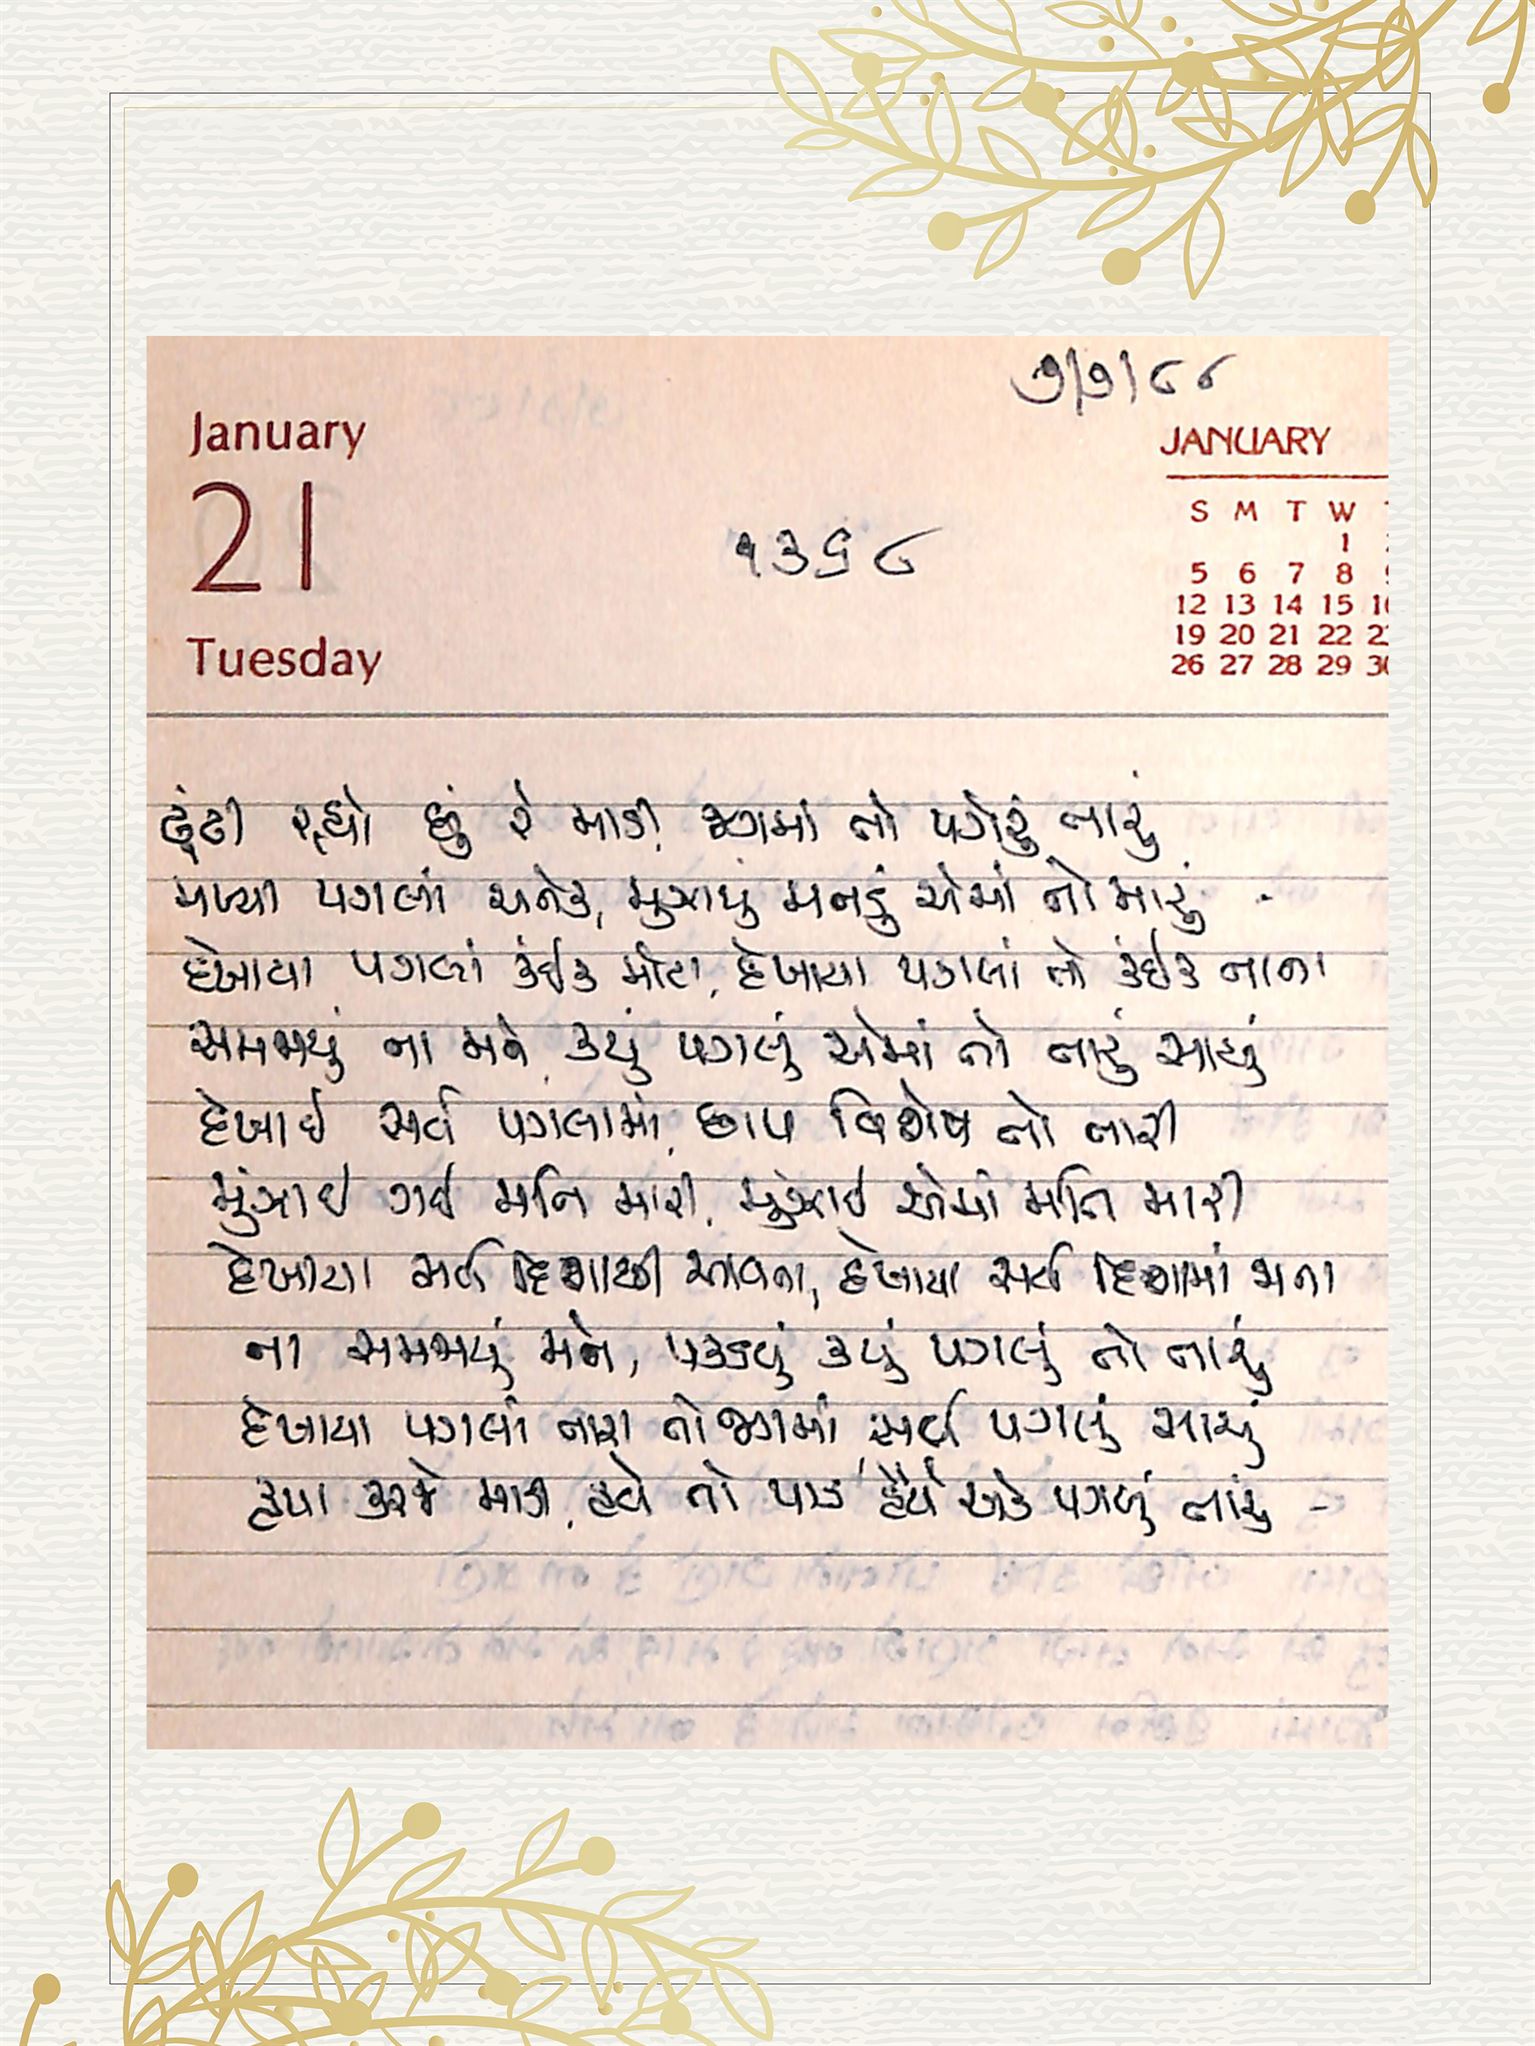 ૭/૧/૮૮
January
21
Tuesday
૧૩૬૮
JANUARY
S M T W
1
5 6 7 8
12 13 14 15
19 20 21 22
26 27 28 29
ઢૂંઢી રહ્યો છું રે માડી, જગમાં તો પગેરું તારું
મળ્યા પગલાં અનેક, મુંઝાયું મનડું એમાં તો મારું -
દેખાયા પગલાં કંઈક મોટા, દેખાયા પગલાં તો કંઈક નાના
સમજાયું ના મને, કયું પગલું એમાં તો તારું સાચું
દેખાઈ સર્વ પગલામાં, છાપ વિશેષ તો તારી
મુંઝાઈ ગઈ મતિ મારી, મુંઝાઈ એમાં મતિ મારી
દેખાયા સર્વ દિશાથી આવતા, દેખાયા સર્વ દિશામાં જાતા
ના સમજાયું મને, પકડવું કયું પગલું તો તારું
દેખાયા પગલાં તારા તો જગમાં, સર્વ પગલું સાચું
કૃપા કરજે માડી, હવે તો પાડ હૈયે એક પગલું તારું -